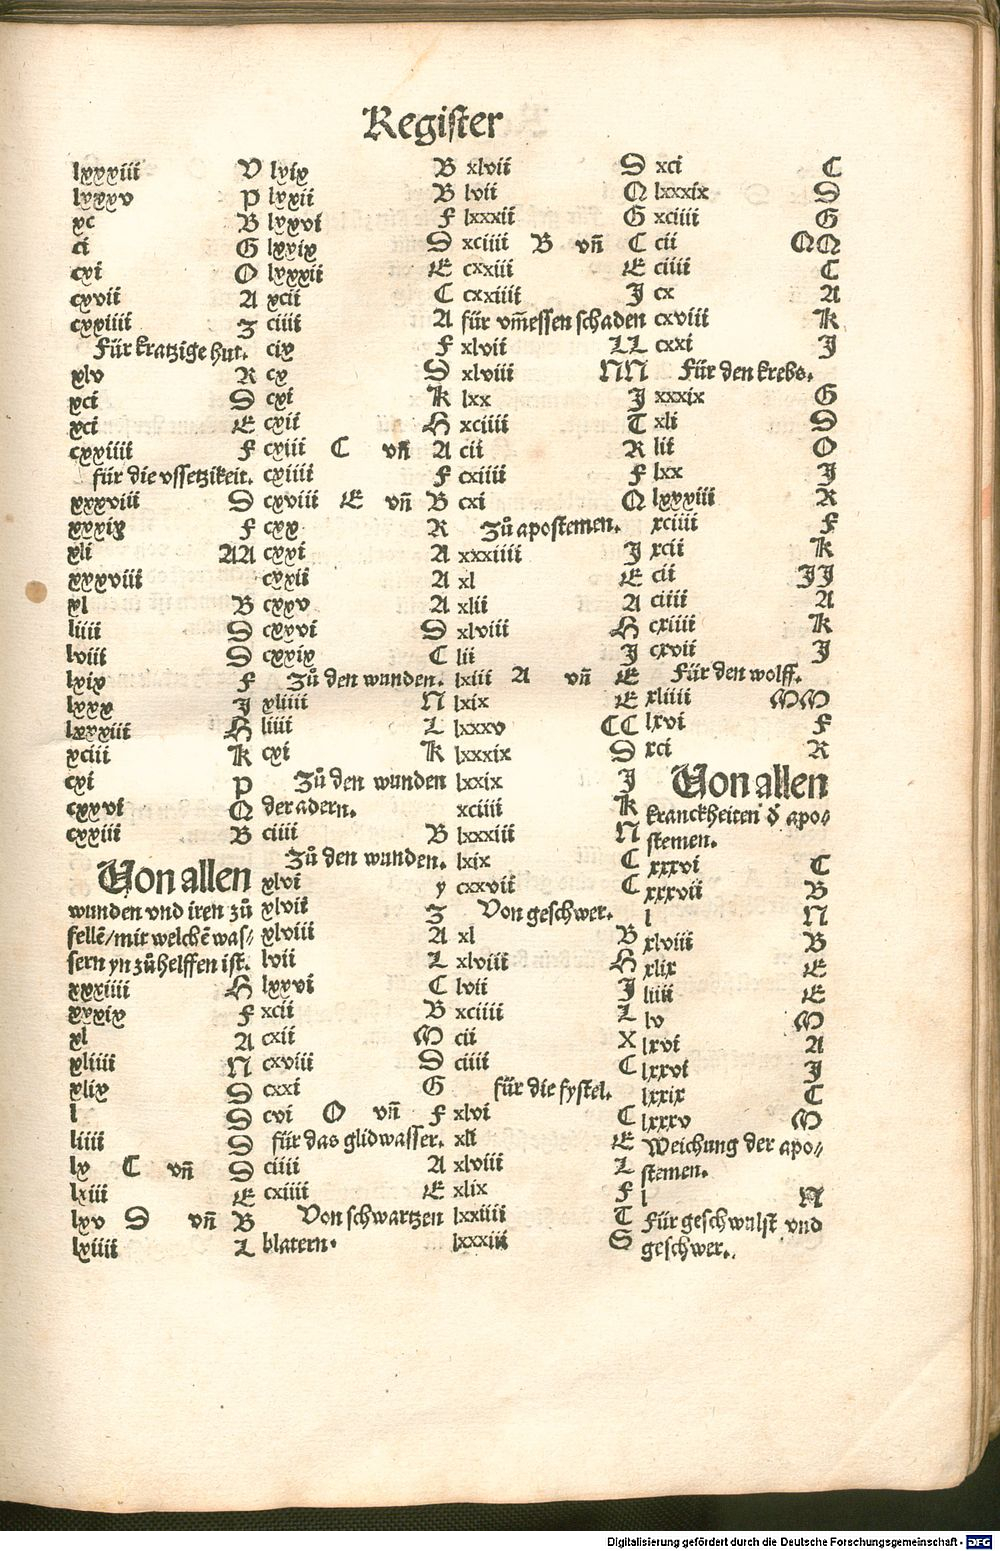 Register
lxxxiii V
lxxxv P
xc B
ci G
cxi O
cxvii A
cxxiiii Z
Für kratzige hut.
xlv R
xci S
xci E
cxxiiii F
für die vssetzikeit.
xxxviii S
xxxix F
xli AA
xxxviii
xl B
liiii S
lviii S
lxix F
lxxx J
lxxxiii H
xciii K
cxi P
cxxvi Q
cxxiii B
Von allen
wunden vnd iren zů
fellē/mit welchē was⸗
sern yn zůhelffen ist.
xxxiiii H
xxxix F
xl A
xliiii N
xlix S
l S
liiii S
lx C vn̄ S
lxiii E
lxv S vn̄ B
lxiiii L
lxix B
lxxii B
lxxvi F
lxxix S
lxxxii E
xcii C
ciii A
cix F
cx S
cxi K
cxii H
cxiii C vn̄ A
cxiiii F
cxviii E vn̄ B
cxx R
cxxi A
cxxii A
cxxv A
cxxvi S
cxxix C
Zů den wunden.
xliiii N
liiii L
cxi K
Zů den wunden
der adern.
ciiii B
Zů den wunden.
xlvi y
xlvii Z
xlviii A
lvii L
lxxvi C
xcii B
cxii M
cxviii S
cxxi G
cvi O vn̄ F
für das glidwasser.
ciiii A
cxiiii E
Von schwartzen
blatern.
xlvii S
lvii Q
lxxxii G
xciiii B vn̄ C
cxxiii E
cxxiiii J
für vm̄essen schaden
xlvii LL
xlviii NN
lxx J
xciiii T
cii R
cxiiii F
cxi Q
Zů apostemen.
xxxiiii J
xl E
xlii A
xlviii H
lii J
lxiii A vn̄ E
lxix E
lxxxv CC
lxxxix S
lxxix J
xciiii K
lxxxiii N
lxix C
cxxvii C
Von geschwer.
xl B
xlviii H
lvii J
xciiii L
cii X
ciiii C
für die fystel.
xlvi C
xli E
xlviii L
xlix F
lxxiiii T
lxxxiii S
xci C
lxxxix S
xciiii G
cii QQ
ciiii C
cx A
cxviii K
cxxi J
Für den krebs.
xxxix G
xli S
lii O
lxx J
lxxxiii R
xciiii F
xcii K
cii JJ
ciiii A
cxiiii K
cxvii J
Für den wolff.
xliiii MM
lxvi F
xci R
Von allen
kranckheiten d̕ apo⸗
stemen.
xxxvi C
xxxvii B
l N
xlviii B
xlix E
liiii E
lv M
lxvi A
lxxvi J
lxxix C
lxxxv M
Weichung der apo⸗
stemen.
l N
Für geschwulst vnd
geschwer.
Digitalisierung gefördert durch die Deutsche Forschungsgemeinschaft - DFG